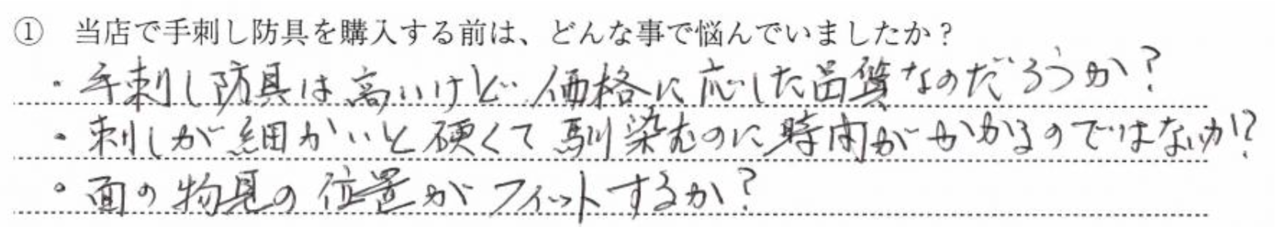 ① 当店で手刺し防具を購入する前は、どんな事で悩んでいましたか？
・手刺し防具は高いけど、価格に応じた品質なのだろうか？
・刺しが細かいと硬くて馴染むのに時間がかかるのではないか!?
・面の物見の位置がフィットするか？